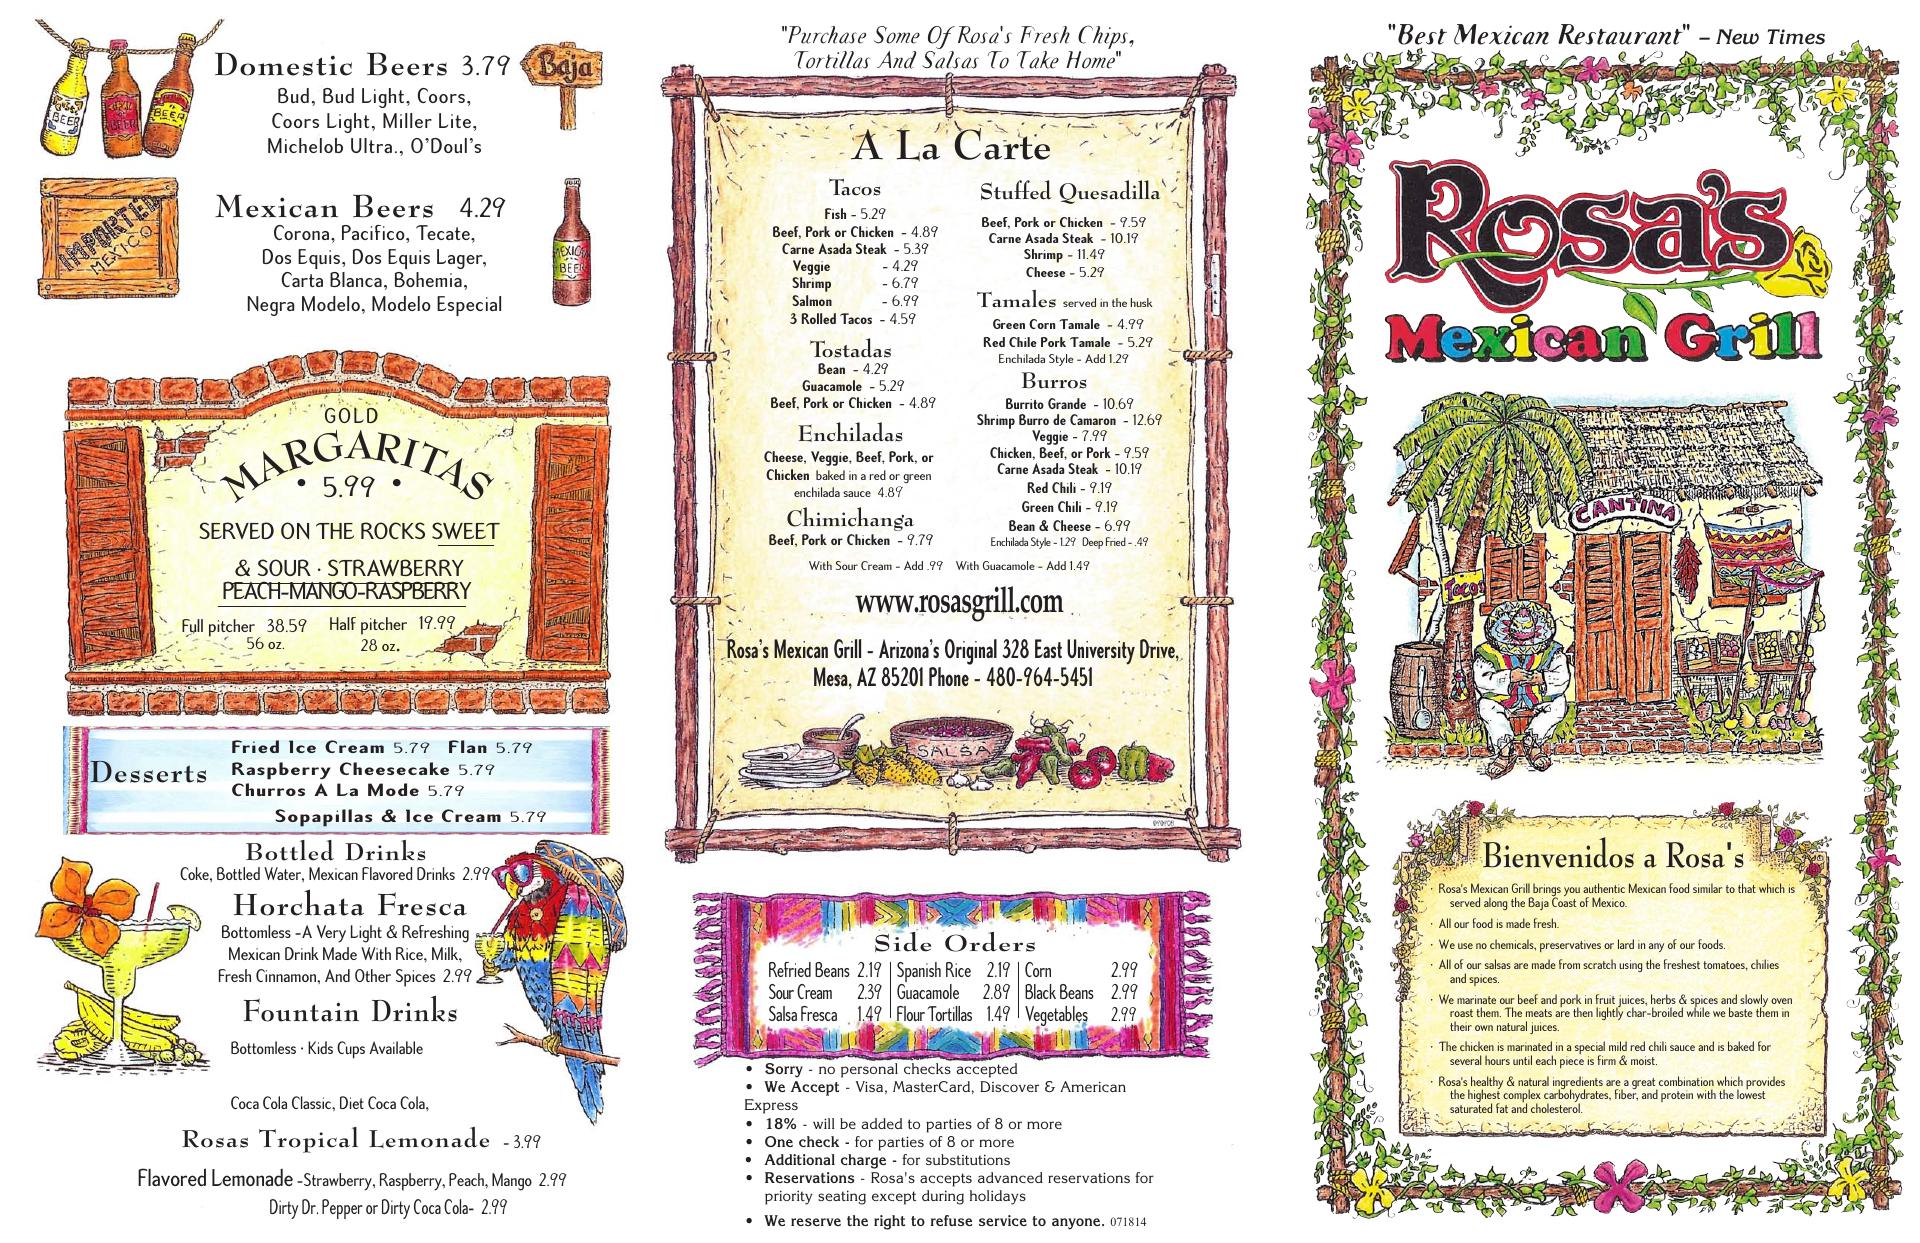 Domestic Beers 3.79
Bud, Bud Light, Coors,
Coors Light, Miller Lite,
Michelob Ultra., O'Doul's
Baja
BEER
BEER
BEER
Mexican Beers 4.29
Corona, Pacifico, Tecate,
Dos Equis, Dos Equis Lager,
Carta Blanca, Bohemia,
Negra Modelo, Modelo Especial
IMPORTED
MEXICO
MEXICAN
BEER
GOLD
MARGARITAS
• 5.99 •
SERVED ON THE ROCKS SWEET
& SOUR · STRAWBERRY
PEACH-MANGO-RASPBERRY
Full pitcher 38.59 Half pitcher 19.99
56 oz. 28 oz.
Desserts
Fried Ice Cream 5.79 Flan 5.79
Raspberry Cheesecake 5.79
Churros A La Mode 5.79
Sopapillas & Ice Cream 5.79
Bottled Drinks
Coke, Bottled Water, Mexican Flavored Drinks 2.99
Horchata Fresca
Bottomless -A Very Light & Refreshing
Mexican Drink Made With Rice, Milk,
Fresh Cinnamon, And Other Spices 2.99
Fountain Drinks
Bottomless · Kids Cups Available
Coca Cola Classic, Diet Coca Cola,
Rosas Tropical Lemonade - 3.99
Flavored Lemonade -Strawberry, Raspberry, Peach, Mango 2.99
Dirty Dr. Pepper or Dirty Coca Cola- 2.99
"Purchase Some Of Rosa's Fresh Chips,
Tortillas And Salsas To Take Home"
A La Carte
Tacos
Fish - 5.29
Beef, Pork or Chicken - 4.89
Carne Asada Steak - 5.39
Veggie - 4.29
Shrimp - 6.79
Salmon - 6.99
3 Rolled Tacos - 4.59
Tostadas
Bean - 4.29
Guacamole - 5.29
Beef, Pork or Chicken - 4.89
Enchiladas
Cheese, Veggie, Beef, Pork, or
Chicken baked in a red or green
enchilada sauce 4.89
Chimichanga
Beef, Pork or Chicken - 9.79
Stuffed Quesadilla
Beef, Pork or Chicken - 9.59
Carne Asada Steak - 10.19
Shrimp - 11.49
Cheese - 5.29
Tamales served in the husk
Green Corn Tamale - 4.99
Red Chile Pork Tamale - 5.29
Enchilada Style - Add 1.29
Burros
Burrito Grande - 10.69
Shrimp Burro de Camaron - 12.69
Veggie - 7.99
Chicken, Beef, or Pork - 9.59
Carne Asada Steak - 10.19
Red Chili - 9.19
Green Chili - 9.19
Bean & Cheese - 6.99
Enchilada Style - 1.29 Deep Fried - .49
With Sour Cream - Add .99 With Guacamole - Add 1.49
www.rosasgrill.com
Rosa's Mexican Grill - Arizona's Original 328 East University Drive,
Mesa, AZ 85201 Phone - 480-964-5451
SALSA
Side Orders
Refried Beans 2.19 Spanish Rice 2.19 Corn 2.99
Sour Cream 2.39 Guacamole 2.89 Black Beans 2.99
Salsa Fresca 1.49 Flour Tortillas 1.49 Vegetables 2.99
• Sorry - no personal checks accepted
• We Accept - Visa, MasterCard, Discover & American
Express
• 18% - will be added to parties of 8 or more
• One check - for parties of 8 or more
• Additional charge - for substitutions
• Reservations - Rosa's accepts advanced reservations for
priority seating except during holidays
• We reserve the right to refuse service to anyone. 071814
"Best Mexican Restaurant" – New Times
Rosa's
Mexican Grill
CANTINA
TACOS
Bienvenidos a Rosa's
· Rosa's Mexican Grill brings you authentic Mexican food similar to that which is
served along the Baja Coast of Mexico.
· All our food is made fresh.
· We use no chemicals, preservatives or lard in any of our foods.
· All of our salsas are made from scratch using the freshest tomatoes, chilies
and spices.
· We marinate our beef and pork in fruit juices, herbs & spices and slowly oven
roast them. The meats are then lightly char-broiled while we baste them in
their own natural juices.
· The chicken is marinated in a special mild red chili sauce and is baked for
several hours until each piece is firm & moist.
· Rosa's healthy & natural ingredients are a great combination which provides
the highest complex carbohydrates, fiber, and protein with the lowest
saturated fat and cholesterol.